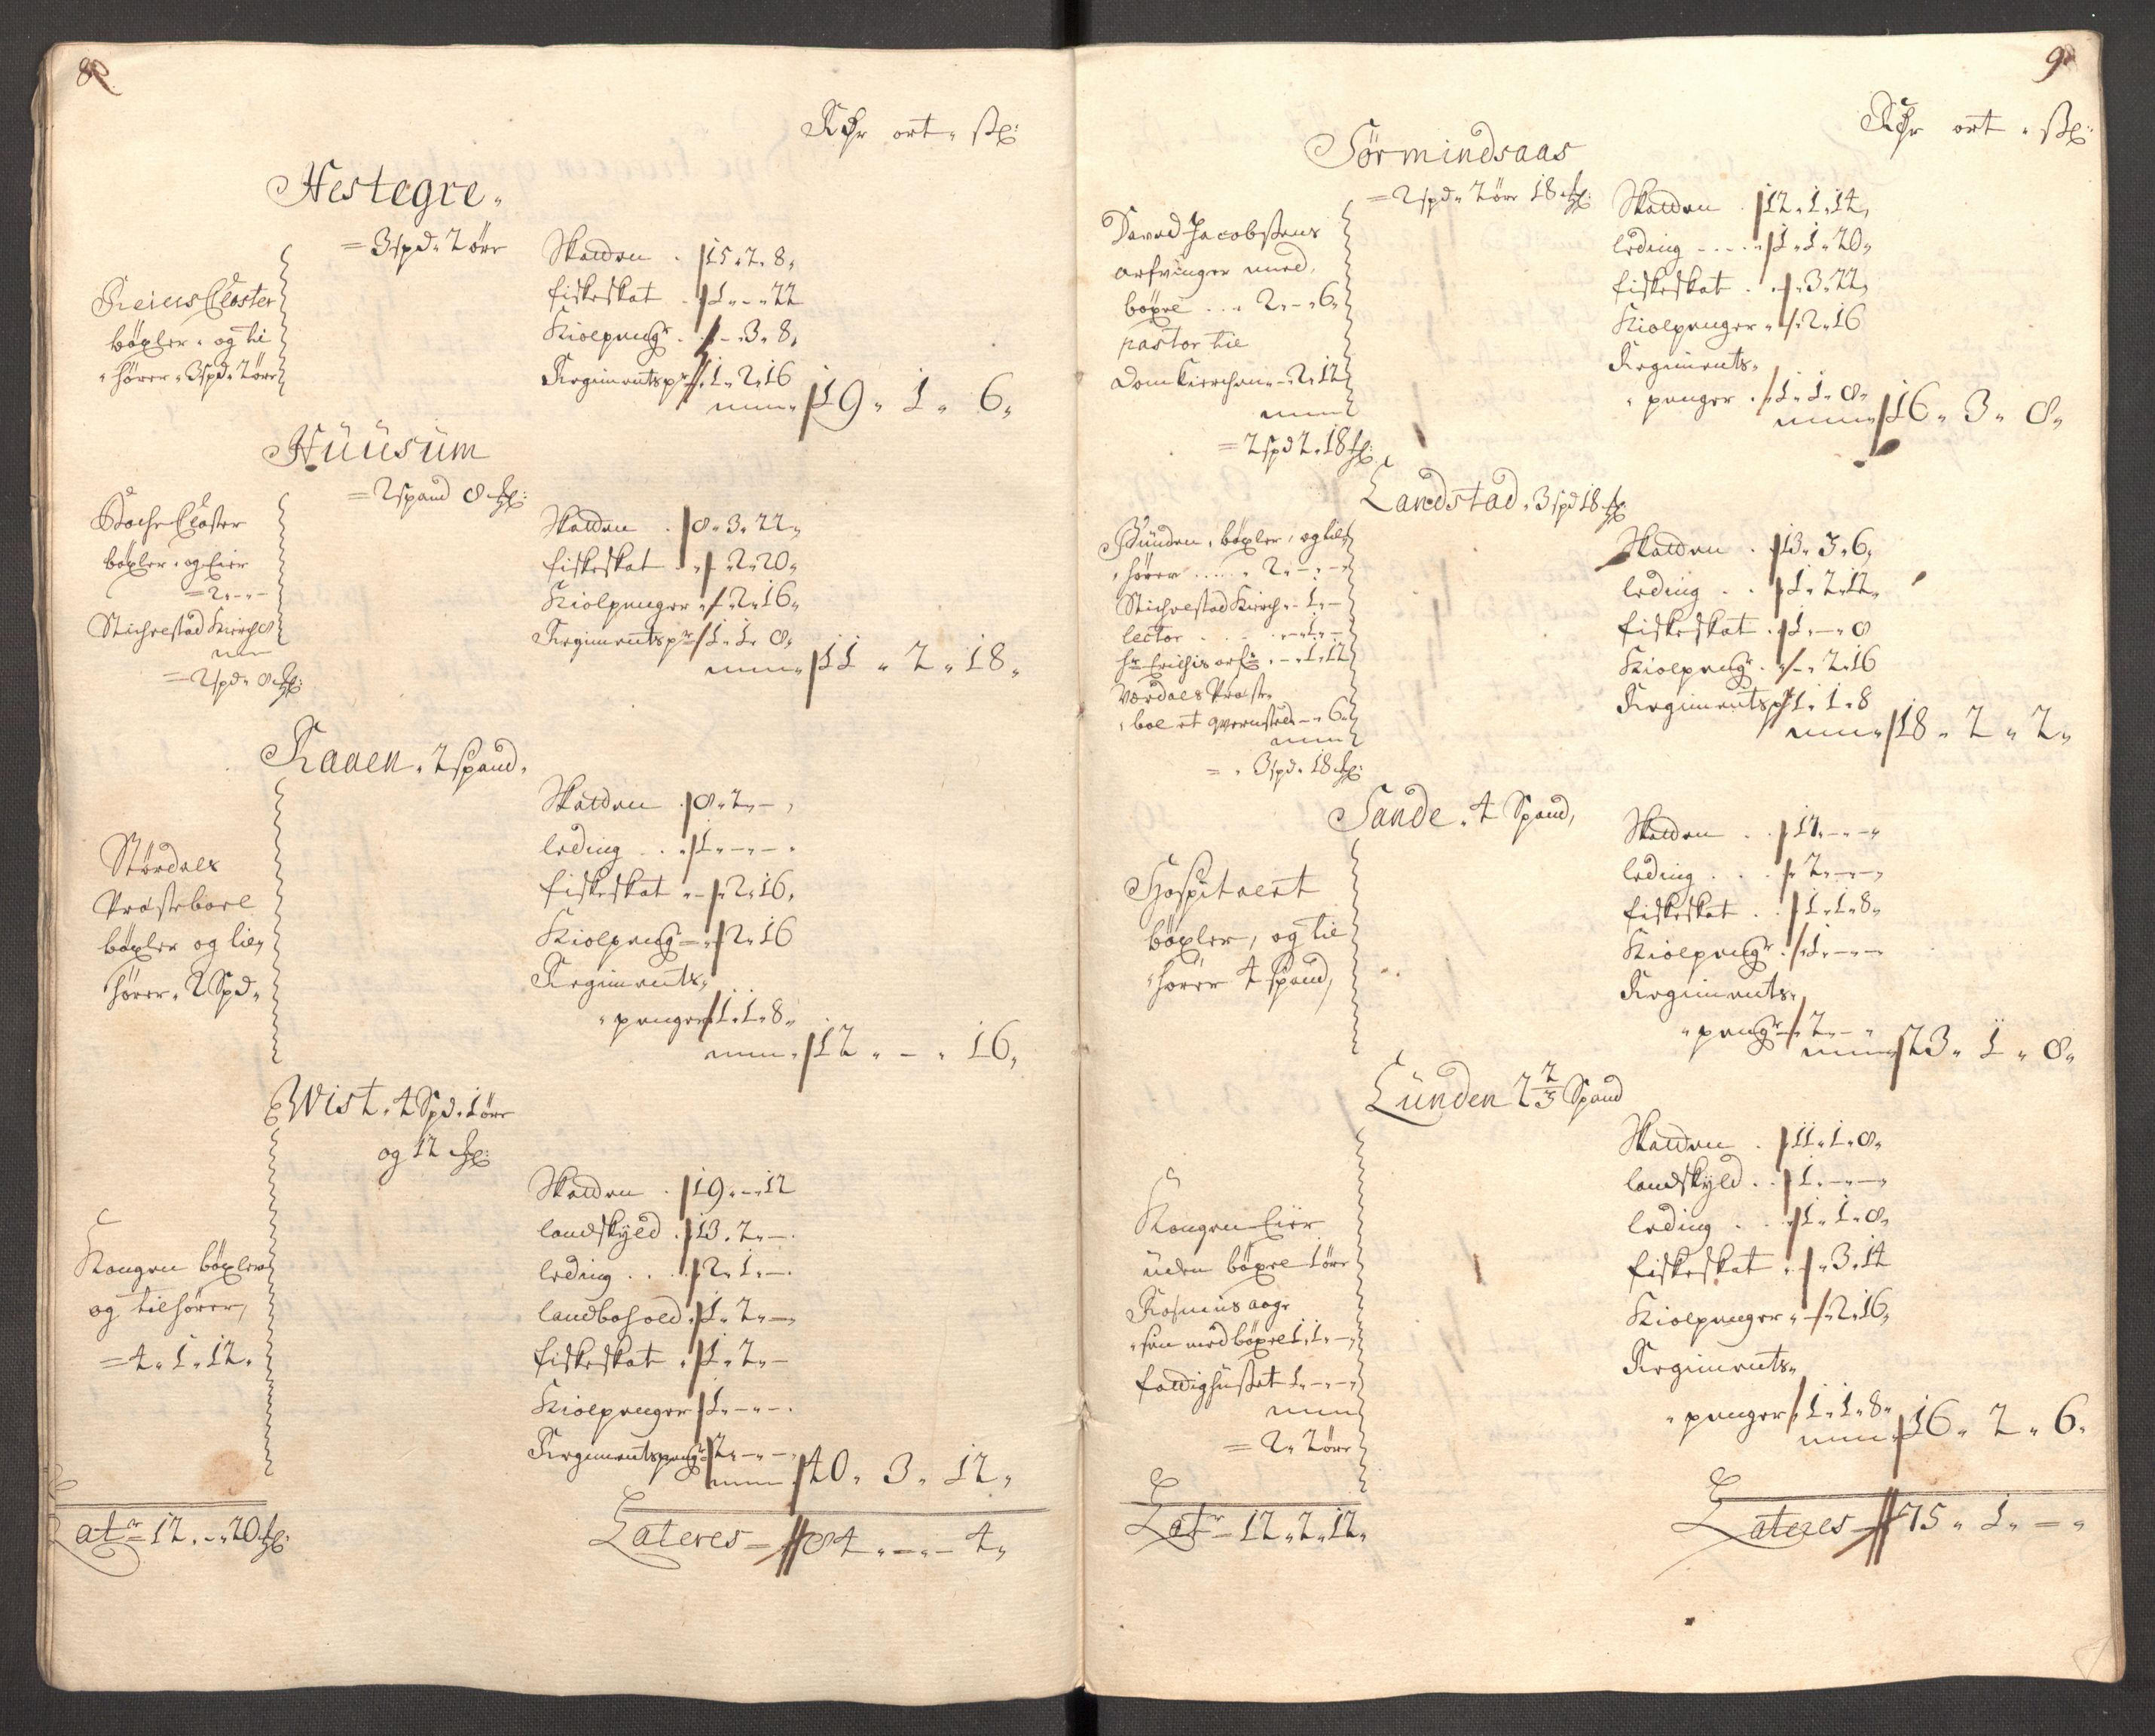 8
Rdr ort. ß:
Hestegre.
= 3 spd. 2 öre
Reins Closter
böxler. og til
hörer. 3 spd. 2 öre
Skatten . 15. 2. 8.
fiskeskat . 1. - . 22
Kiolpengr . - . 3. 8.
Regimentspr. 1. 2. 16
19. 1. 6.
Huusum
= 2 spand 8 ℔:
Bache Closter
böxler. og Eier
= 2. - . -
Stichlestad Kirche 8
= 2 spd. 8 ℔:
Skatten . 8. 3. 22.
fiskeskat . - . 2. 20.
Kiolpenger . - . 2. 16.
Regimentspr 1. 1. 8.
11. 2. 18.
Raaen. 2 spand.
Stördals
Presteboel
böxler og til
hörer. 2 Spd.
Skatten . 8. 2. - .
leding . . 1. - . - .
fiskeskat . - . 2. 16.
Kiolpeng = . 2. 16
Regiments
penger 1. 1. 8.
12. - . 16.
Wist. 4 Spd. 1 öre
og 12 ℔:
Kongen böxler
og tilhörer,
= 4. 1. 12.
Skatten . 19. - . 12
landskyld . 13. 2. - .
leding . . . 2. 1. - .
landbohold . 1. 2. -
fiskeskat . 1. 2. -
Kiolpenger 1. - . - .
Regimentspengr 2. - . - .
40. 3. 12.
Latr = 12. - . 20 ℔:
Lateres = 84. - . - 4.
9
Rdr ort . ß:
Sörmindsaas
= 2 spd. 2 öre 18 ℔:
David Jacobsens
arfvinger med,
böxel . . . 2. - . 6.
pastor til
Domkierchen. - . 2. 12
= 2 spd 2. 18 ℔:
Skatten . 12. 1. 14.
leding . . . . 1. 1. 20.
fiskeskat . . - . 3. 22.
Kiolpenger . - . 2. 16
Regiments.
penger . 1. 1. 8.
16. 3. 8.
Landstad. 3 spd 18 ℔
Bunden, böxler, og til
hörer . . . . . 2. - . -
Stichlestad Kirch . - . 1. -
lector . . . . - . 1. -
hr Erichs arf: . - . 1. 12
Verdals Preste
boel et qvernsted. - . 6.
= . 3 spd. 18 ℔:
Skatten . 13. 3. 6.
leding . . 1. 2. 12.
fiskeskat . 1. - . 8
Kiolpengr . - . 2. 16
Regimentspr 1. 1. 8
18. 2. 2.
Sande. 4 Spand,
Hospitalet
böxler, og til
hörer 4 spand,
Skatten . . 17. - . -
leding . . . 2. - . -
fiskeskat . . 1. 1. 8.
Kiolpengr . 1. - . -
Regiments.
pengr 2. - .
23. 1. 8.
Lunden 2 2/3 Spand
Kongen Eier
uden böxel 1 öre
Rasmus aage
sen med böxel 1. 1. -
fattighuset 1. - . -
= 2. 2 öre
Skatten . 11. 1. 8.
landskyld . . 1. - . -
leding . . 1. 1. 8.
fiskeskat . - . 3. 14
Kiolpenger . - . 2. 16.
Regiments.
penger 1. 1. 8.
16. 2. 6.
Latr = 12. 2. 12.
Lateres = 75. 1. - .